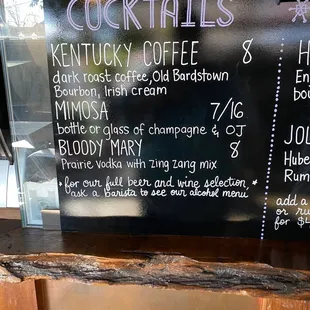 COCKTAILS
KENTUCKY COFFEE 8
dark roast coffee, Old Bardstown
Bourbon, Irish cream
MIMOSA 7/16
bottle or glass of champagne & OJ
BLOODY MARY 8
Prairie vodka with zing zang mix
*for our full beer and wine selection, *
ask a barista to see our alcohol menu
H
En
bo
JOL
Hube
Rum
add a
or ru
for $4